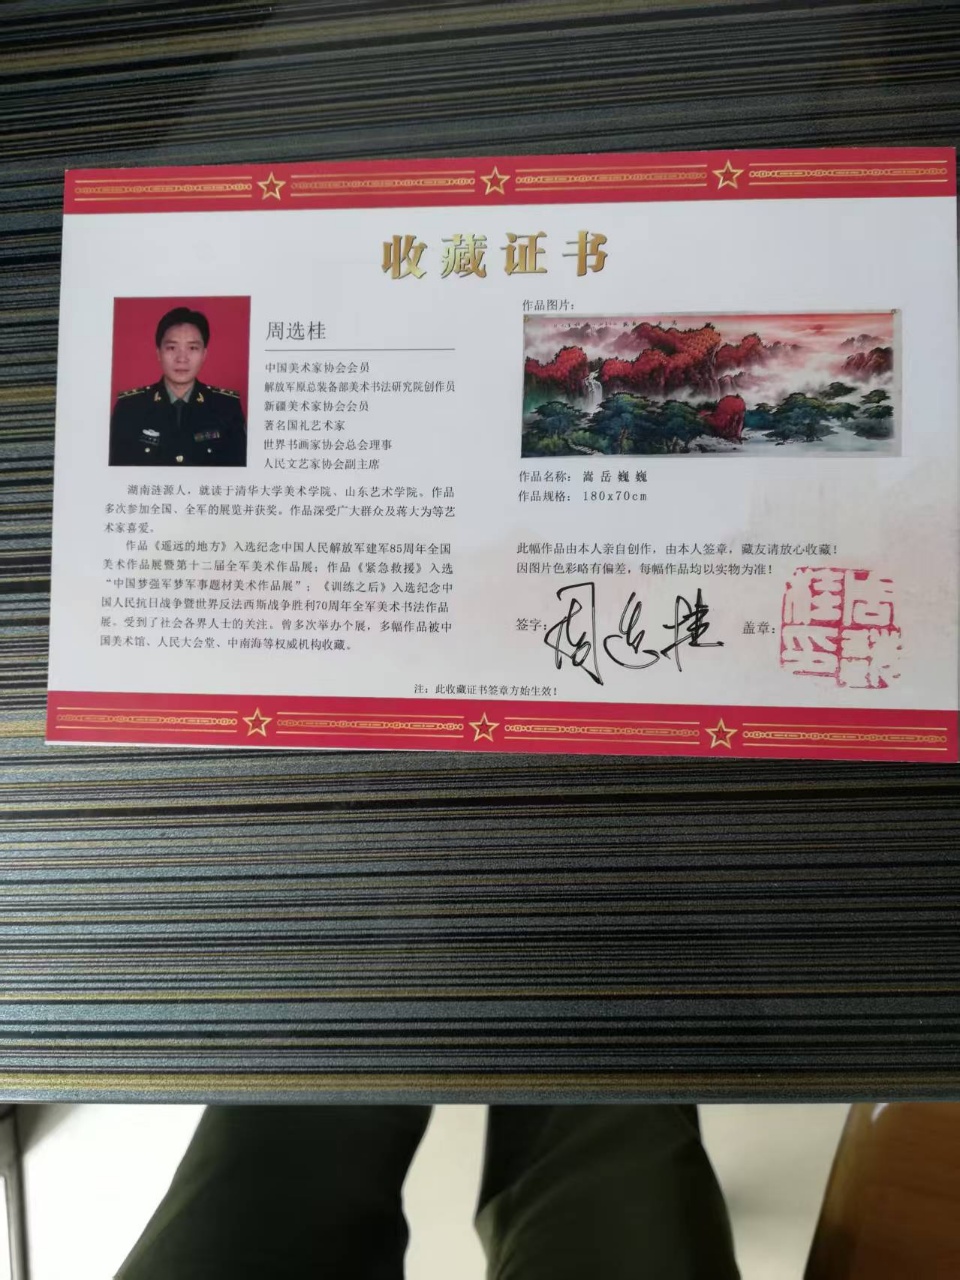 收藏证书
周选桂
中国美术家协会会员
解放军原总装备部美术书法研究院创作员
新疆美术家协会会员
著名国礼艺术家
世界书画家协会总会理事
人民文艺家协会副主席
湖南涟源人，就读于清华大学美术学院、山东艺术学院。作品
多次参加全国、全军的展览并获奖。作品深受广大群众及蒋大为等艺
术家喜爱。
作品《遥远的地方》入选纪念中国人民解放军建军85周年全国
美术作品展暨第十二届全军美术作品展；作品《紧急救援》入选
“中国梦强军梦军事题材美术作品展”；《训练之后》入选纪念中
国人民抗日战争暨世界反法西斯战争胜利70周年全军美术书法作品
展。受到了社会各界人士的关注。曾多次举办个展，多幅作品被中
国美术馆、人民大会堂、中南海等权威机构收藏。
作品图片：
作品名称： 嵩岳巍巍
作品规格： 180x70cm
此幅作品由本人亲自创作，由本人签章，藏友请放心收藏！
因图片色彩略有偏差，每幅作品均以实物为准！
签字： 周选桂
盖章：
注：此收藏证书签章方始生效！